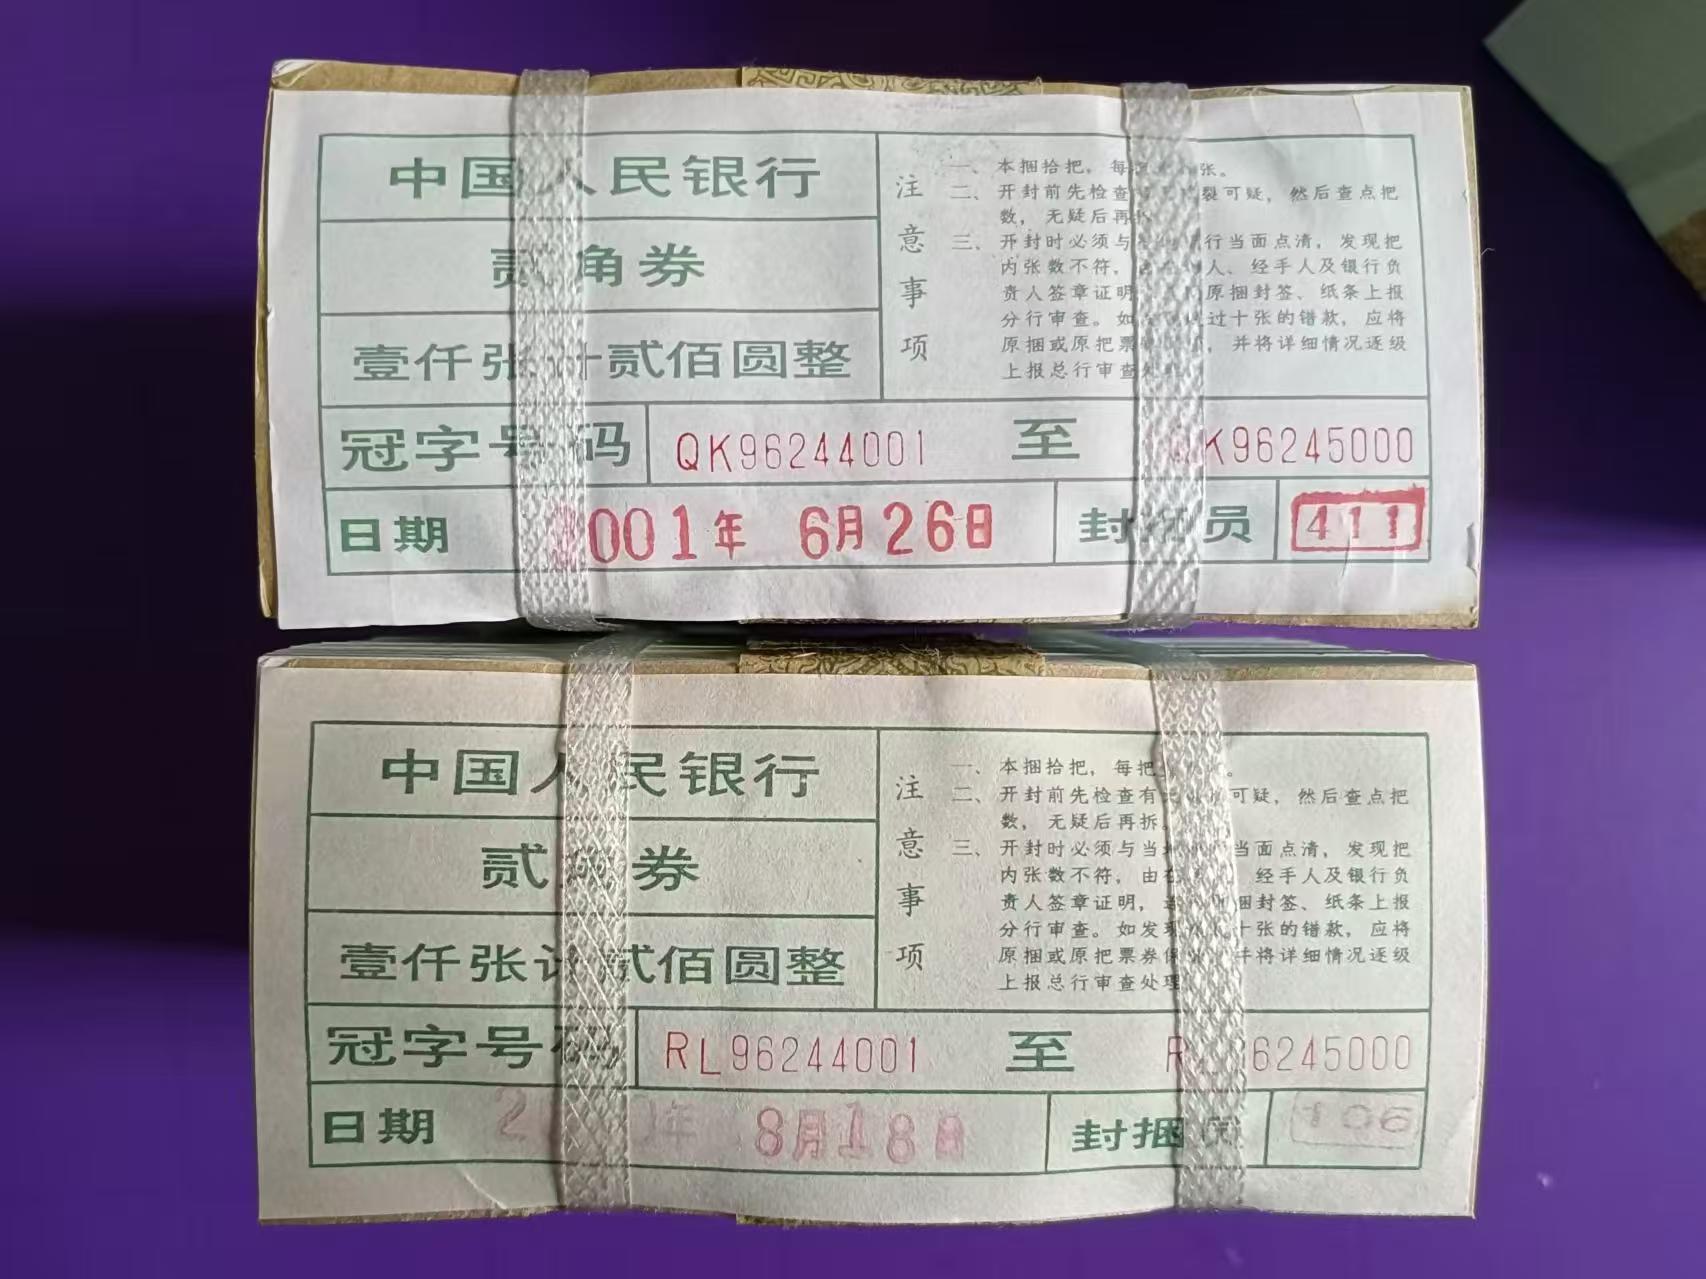 中国人民银行
贰角券
壹仟张计贰佰圆整
注意事项
一、本捆拾把，每张。
二、开封前先检查裂可疑，然后查点把
数，无疑后再拆
三、开封时必须与行当面点清，发现把
内张数不符，人、经手人及银行负
责人签章证明，原捆封签、纸条上报
分行审查。如过十张的错款，应将
原捆或原把票，并将详细情况逐级
上报总行审查处理
冠字号码 QK96244001 至 QK96245000
日期 2001年 6月26日 封捆员 411
中国人民银行
贰角券
壹仟张计贰佰圆整
注意事项
一、本捆拾把，每把。
二、开封前先检查有可疑，然后查点把
数，无疑后再拆。
三、开封时必须与当当面点清，发现把
内张数不符，由经手人及银行负
责人签章证明，捆封签、纸条上报
分行审查。如发现十张的错款，应将
原捆或原把票券保并将详细情况逐级
上报总行审查处理
冠字号码 RL96244001 至 RL96245000
日期 年 8月18日 封捆员 106